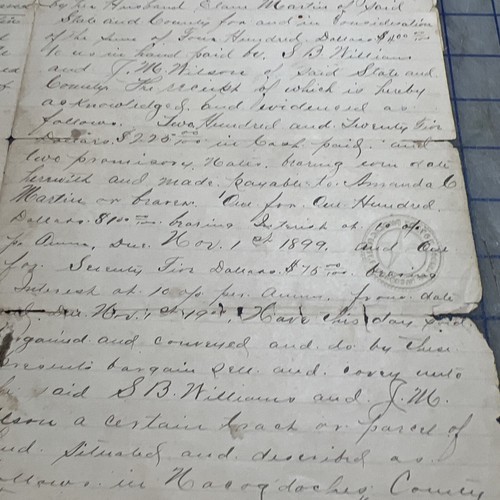 by her Husband Elam Martin of Said
State and County for and in Consideration
of the Sum of Four Hundred Dollars $400 00/100
to us in hand paid by S B Williams
and J. M. Wilson of Said State and
County. The receipt of which is hereby
acknowledged and evidenced as
follows. Two Hundred and Twenty Five
Dollars $225 00/100 in Cash paid. and
two promissory Notes bearing even date
herewith and made payable to Amanda C
Martin or bearer. One for One Hundred
Dollars $100 00/100 bearing Interest at 10 %
pr Annum, Due Nov. 1st 1899. and One
for Seventy Five Dollars $75 00/100 bearing
Interest at 10 % per Annum. from date
Due Nov. 1st. Have this day
and conveyed and do by these
presents bargain Sell and convey unto
said S B. Williams and J. M.
a certain tract or parcel of
Situated and described as
in Nacogdoches County